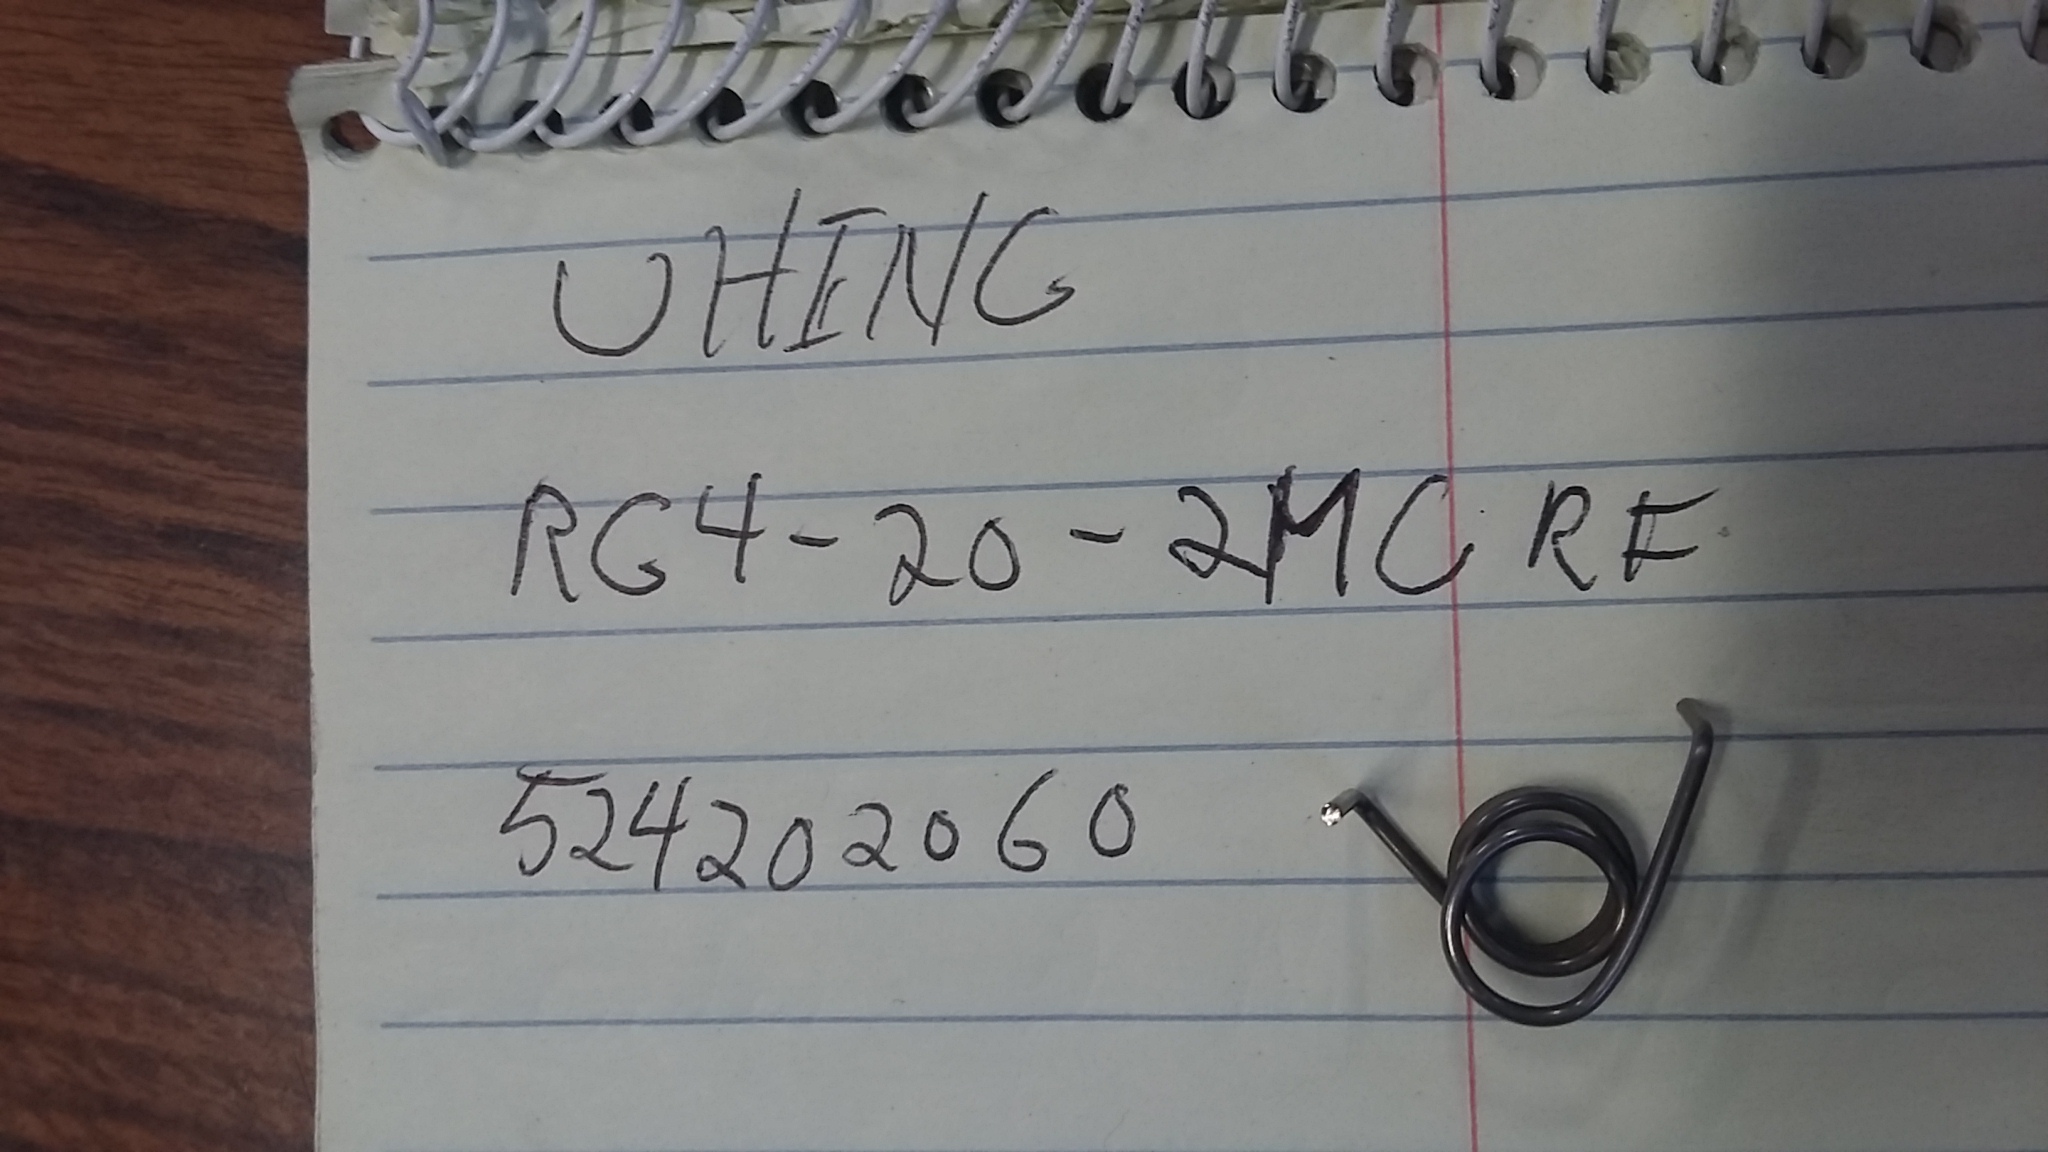 UHING
RG4-20-2MCRF
524202060